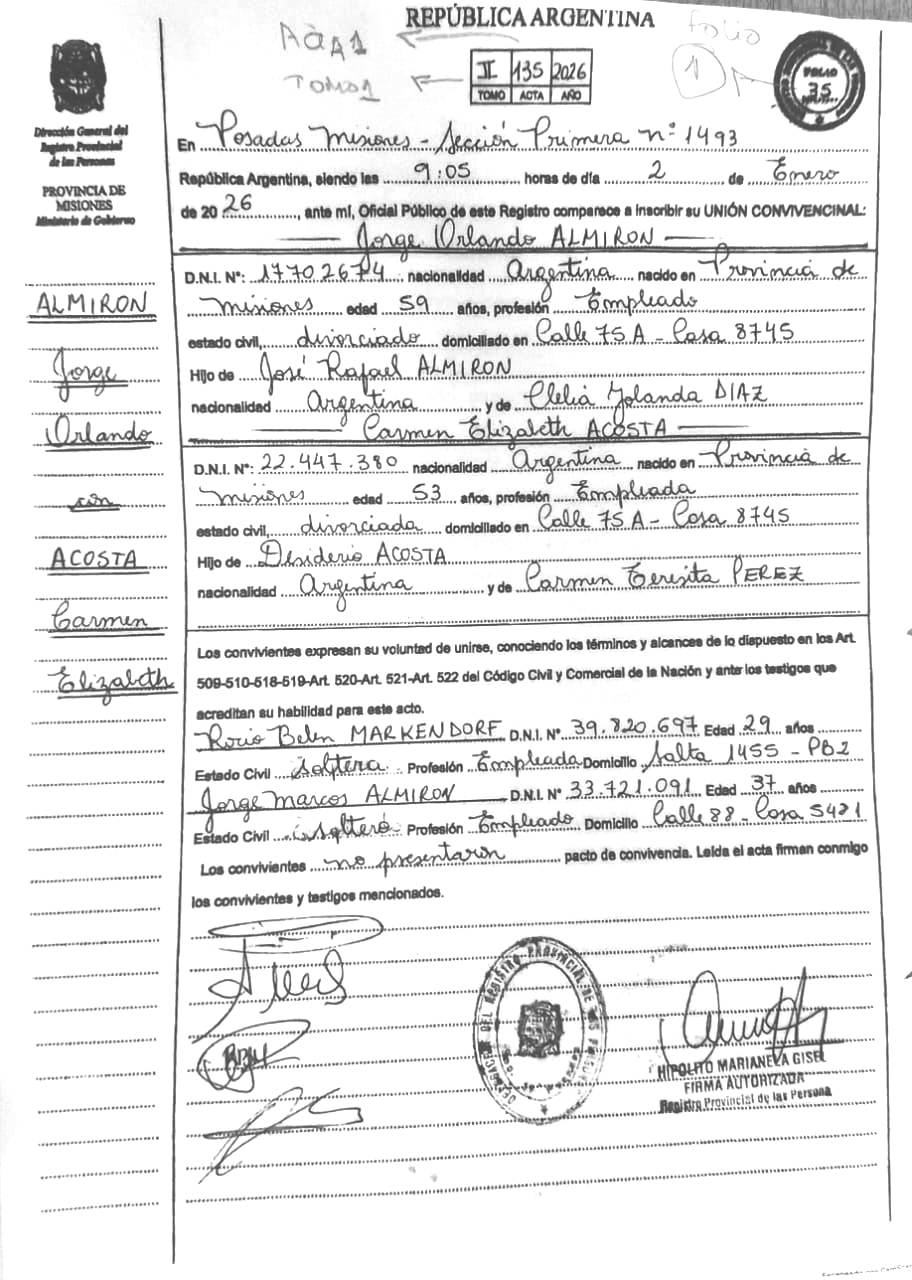 REPÚBLICA ARGENTINA
Folio
TOMO1
1
II 135 2026
TOMO ACTA AÑO
FOLIO
35
Dirección General del
Registro Provincial
de las Personas
PROVINCIA DE
MISIONES
Ministerio de Gobierno
En Posadas Misiones - Sección Primera nº 1493
República Argentina, siendo las 9:05 horas de día 2 de Enero
de 2026, ante mí, Oficial Público de este Registro comparece a inscribir su UNIÓN CONVIVENCINAL:
Jorge Orlando ALMIRON
D.N.I. Nº: 17702674 nacionalidad Argentina nacido en Provincia de
Misiones edad 59 años, profesión Empleado
estado civil, divorciado domiciliado en Calle 75 A - Casa 8745
Hijo de José Rafael ALMIRON
nacionalidad Argentina y de Clelia Yolanda DIAZ
Carmen Elizabeth ACOSTA
D.N.I. Nº: 22.447.380 nacionalidad Argentina nacido en Provincia de
Misiones edad 53 años, profesión Empleada
estado civil, divorciada domiciliado en Calle 75 A - Casa 8745
Hijo de Desiderio ACOSTA
nacionalidad Argentina y de Carmen Teresita PEREZ
ALMIRON
Jorge
Orlando
con
ACOSTA
Carmen
Elizabeth
Los convivientes expresan su voluntad de unirse, conociendo los términos y alcances de lo dispuesto en los Art.
509-510-518-519-Art. 520-Art. 521-Art. 522 del Código Civil y Comercial de la Nación y ante los testigos que
acreditan su habilidad para este acto.
Rocio Belen MARKENDORF D.N.I. Nº 39.820.697 Edad 29 años
Estado Civil soltera Profesión Empleada Domicilio Salta 1455 - PB2
Jorge Marcos ALMIRON D.N.I. Nº 33.721.091 Edad 37 años
Estado Civil soltero Profesión Empleado Domicilio Calle 88 - Casa 5421
Los convivientes no presentaron pacto de convivencia. Leída el acta firman conmigo
los convivientes y testigos mencionados.
HIPOLITO MARIANELA GISEL
FIRMA AUTORIZADA
Registro Provincial de las Persona